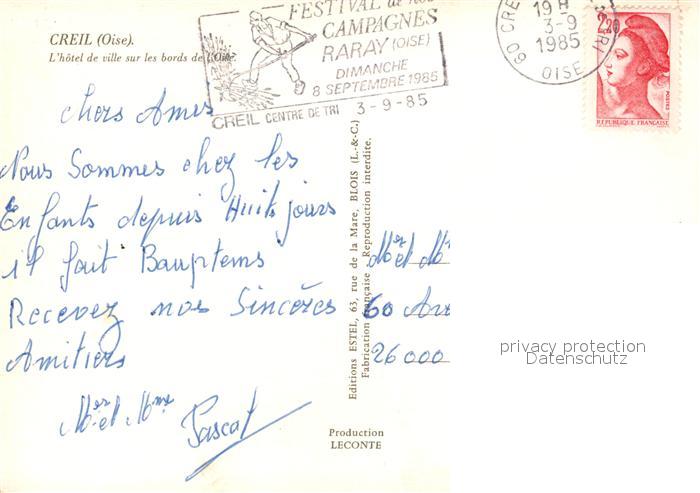 CREIL (Oise).
L'hôtel de ville sur les bords de l'Oise.
FESTIVAL de nos
CAMPAGNES
RARAY (OISE)
DIMANCHE
8 SEPTEMBRE 1985
CREIL CENTRE DE TRI 3-9-85
60 CREIL TRI
19 H
3-9
1985
OISE
2,20
POSTES
REPUBLIQUE FRANÇAISE
chers Amis
Nous Sommes chez les
Enfants depuis Huits jours
il fait Bauptems
Recevez nos Sincères
Amitiers
Mer et Mme Pascal
Editions ESTEL, 63, rue de la Mare, BLOIS (L.-&-C.)
Fabrication française Reproduction interdite.
Mer et M
60 Av
26000
privacy protection
Datenschutz
Production
LECONTE